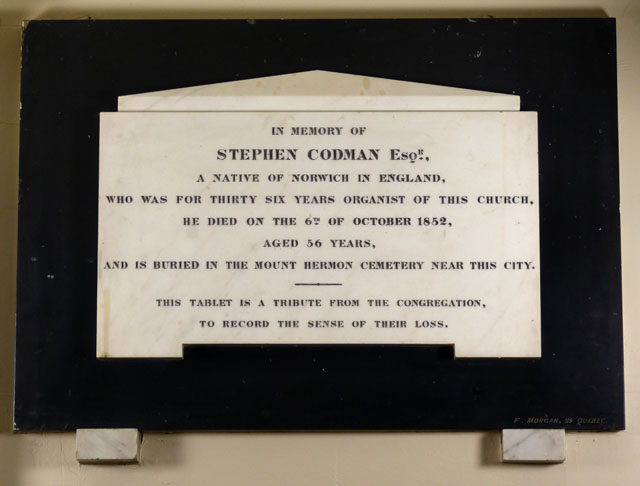 IN MEMORY OF
STEPHEN CODMAN ESQR,
A NATIVE OF NORWICH IN ENGLAND,
WHO WAS FOR THIRTY SIX YEARS ORGANIST OF THIS CHURCH,
HE DIED ON THE 6TH OF OCTOBER 1852,
AGED 56 YEARS,
AND IS BURIED IN THE MOUNT HERMON CEMETERY NEAR THIS CITY.
THIS TABLET IS A TRIBUTE FROM THE CONGREGATION,
TO RECORD THE SENSE OF THEIR LOSS.
F. MORGAN, QUEBEC